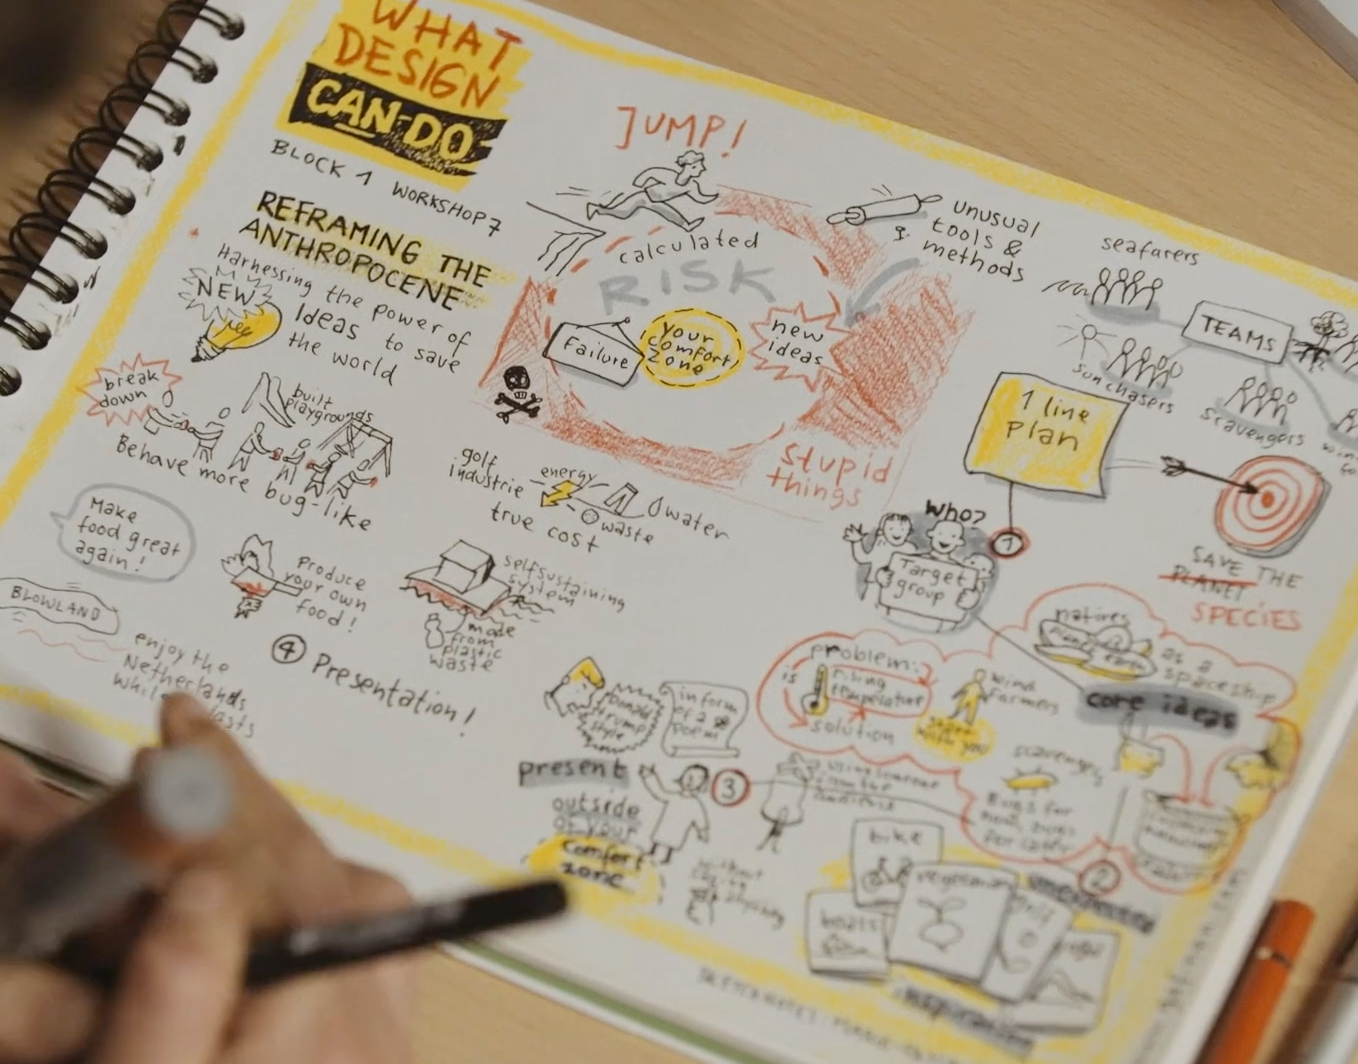 WHAT
DESIGN
CAN DO
BLOCK 1 WORKSHOP 7
REFRAMING THE
ANTHROPOCENE
Harnessing the power of
NEW
Ideas to save
the world
break
down
built
playgrounds
Behave more bug-like
Make
food great
again!
PRODUCE
your own
food!
BLOWLAND
enjoy the
Netherlands
JUMP!
calculated
RISK
Failure
your
comfort
zone
new
ideas
stupid
things
UNUSUAL
tools &
methods
golf
industrie
energy
waste
water
true cost
selfsustaining
system
made
from
plastic
waste
4 Presentation!
seafarers
TEAMS
sunchasers
scavengers
1 line
Plan
1
SAVE THE
PLANET
SPECIES
WHO?
Target
group
problem:
is
rising
temperature
solution
wind
farmers
natives
as a
spaceship
core ideas
2
Donald
Trump
style
in form
of a
poem
present
outside
of your
comfort
zone
3
without
saying
anything
bike
boats
vegetarian